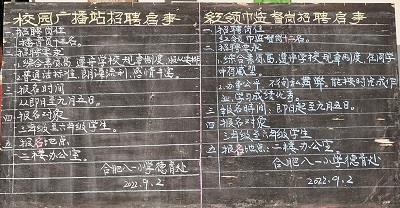 校园广播站招聘启事
一.招聘岗位
播音员十二名。
二.招聘要求
1.综合素质高,遵守学校规章制度,
2.普通话标准,朗读流利,感情丰富。
三.报名时间
从即日至九月五日。
四.报名对象
三年级至六年级学生。
五.报名地点:
二楼办公室。
合肥八一小学德育处
2022.9.2
红领巾监督岗招聘启事
一.招聘岗位
红领巾监督岗十二名。
二.招聘要求
1.综合素质高,遵守学校规章制度,在同学
中有威望。
2.办事公平,不徇私舞弊,能按时完成作
业,学习成绩优秀
三.报名时间:即日起至九月五日。
四.报名对象
三年级至六年级学生。
五.报名地点:
二楼办公室。
合肥八一小学德育处
2022.9.2